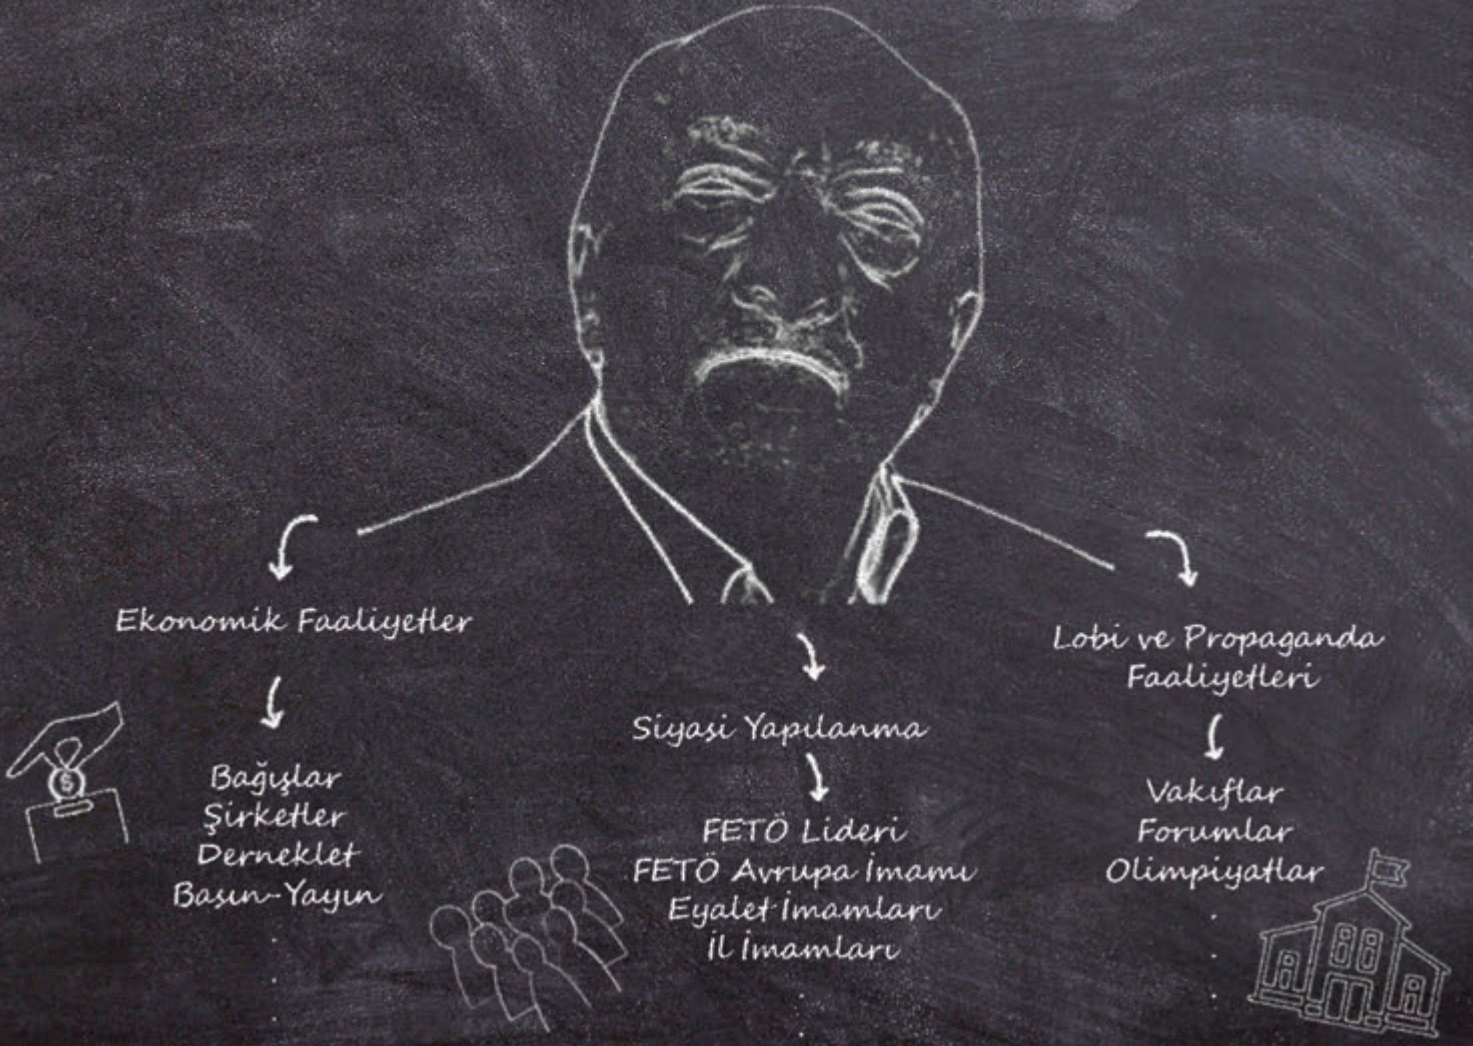 Ekonomik Faaliyetler
Bağışlar
Şirketler
Derneklet
Basın-Yayın
Siyasi Yapılanma
FETÖ Lideri
FETÖ Avrupa İmamı
Eyalet İmamları
İl İmamları
Lobi ve Propaganda
Faaliyetleri
Vakıflar
Forumlar
Olimpiyatlar
$